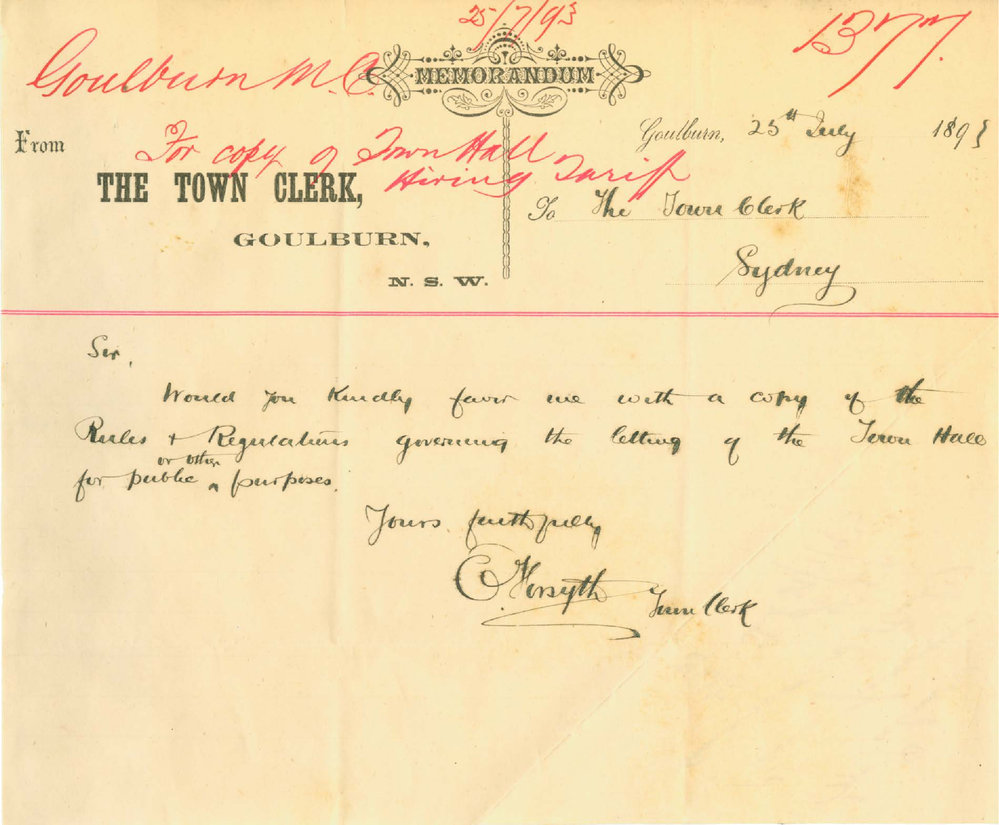 25/7/93
1377.
Goulburn M.C.
MEMORANDUM
Goulburn, 25th July 1893
From
For copy of Town Hall
Hiring Tariff
THE TOWN CLERK,
GOULBURN,
N. S. W.
To The Town Clerk
Sydney
Sir,
Would you kindly favor me with a copy of the
Rules & Regulations governing the letting of the Town Hall
for public or other purposes.
Yours faithfully
C. Forsyth
Town Clerk